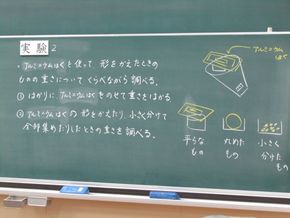 実験2
・アルミニウムはくを使って、形をかえたときの
ものの重さについてくらべながら調べる。
① はかりにアルミニウムはくをのせて重さをはかる。
② アルミニウムはくの形をかえたり、小さく分けて
全部集めたりしたときの重さを調べる。
アルミニウム
はく
平らな
もの
丸めた
もの
小さく
分けた
もの